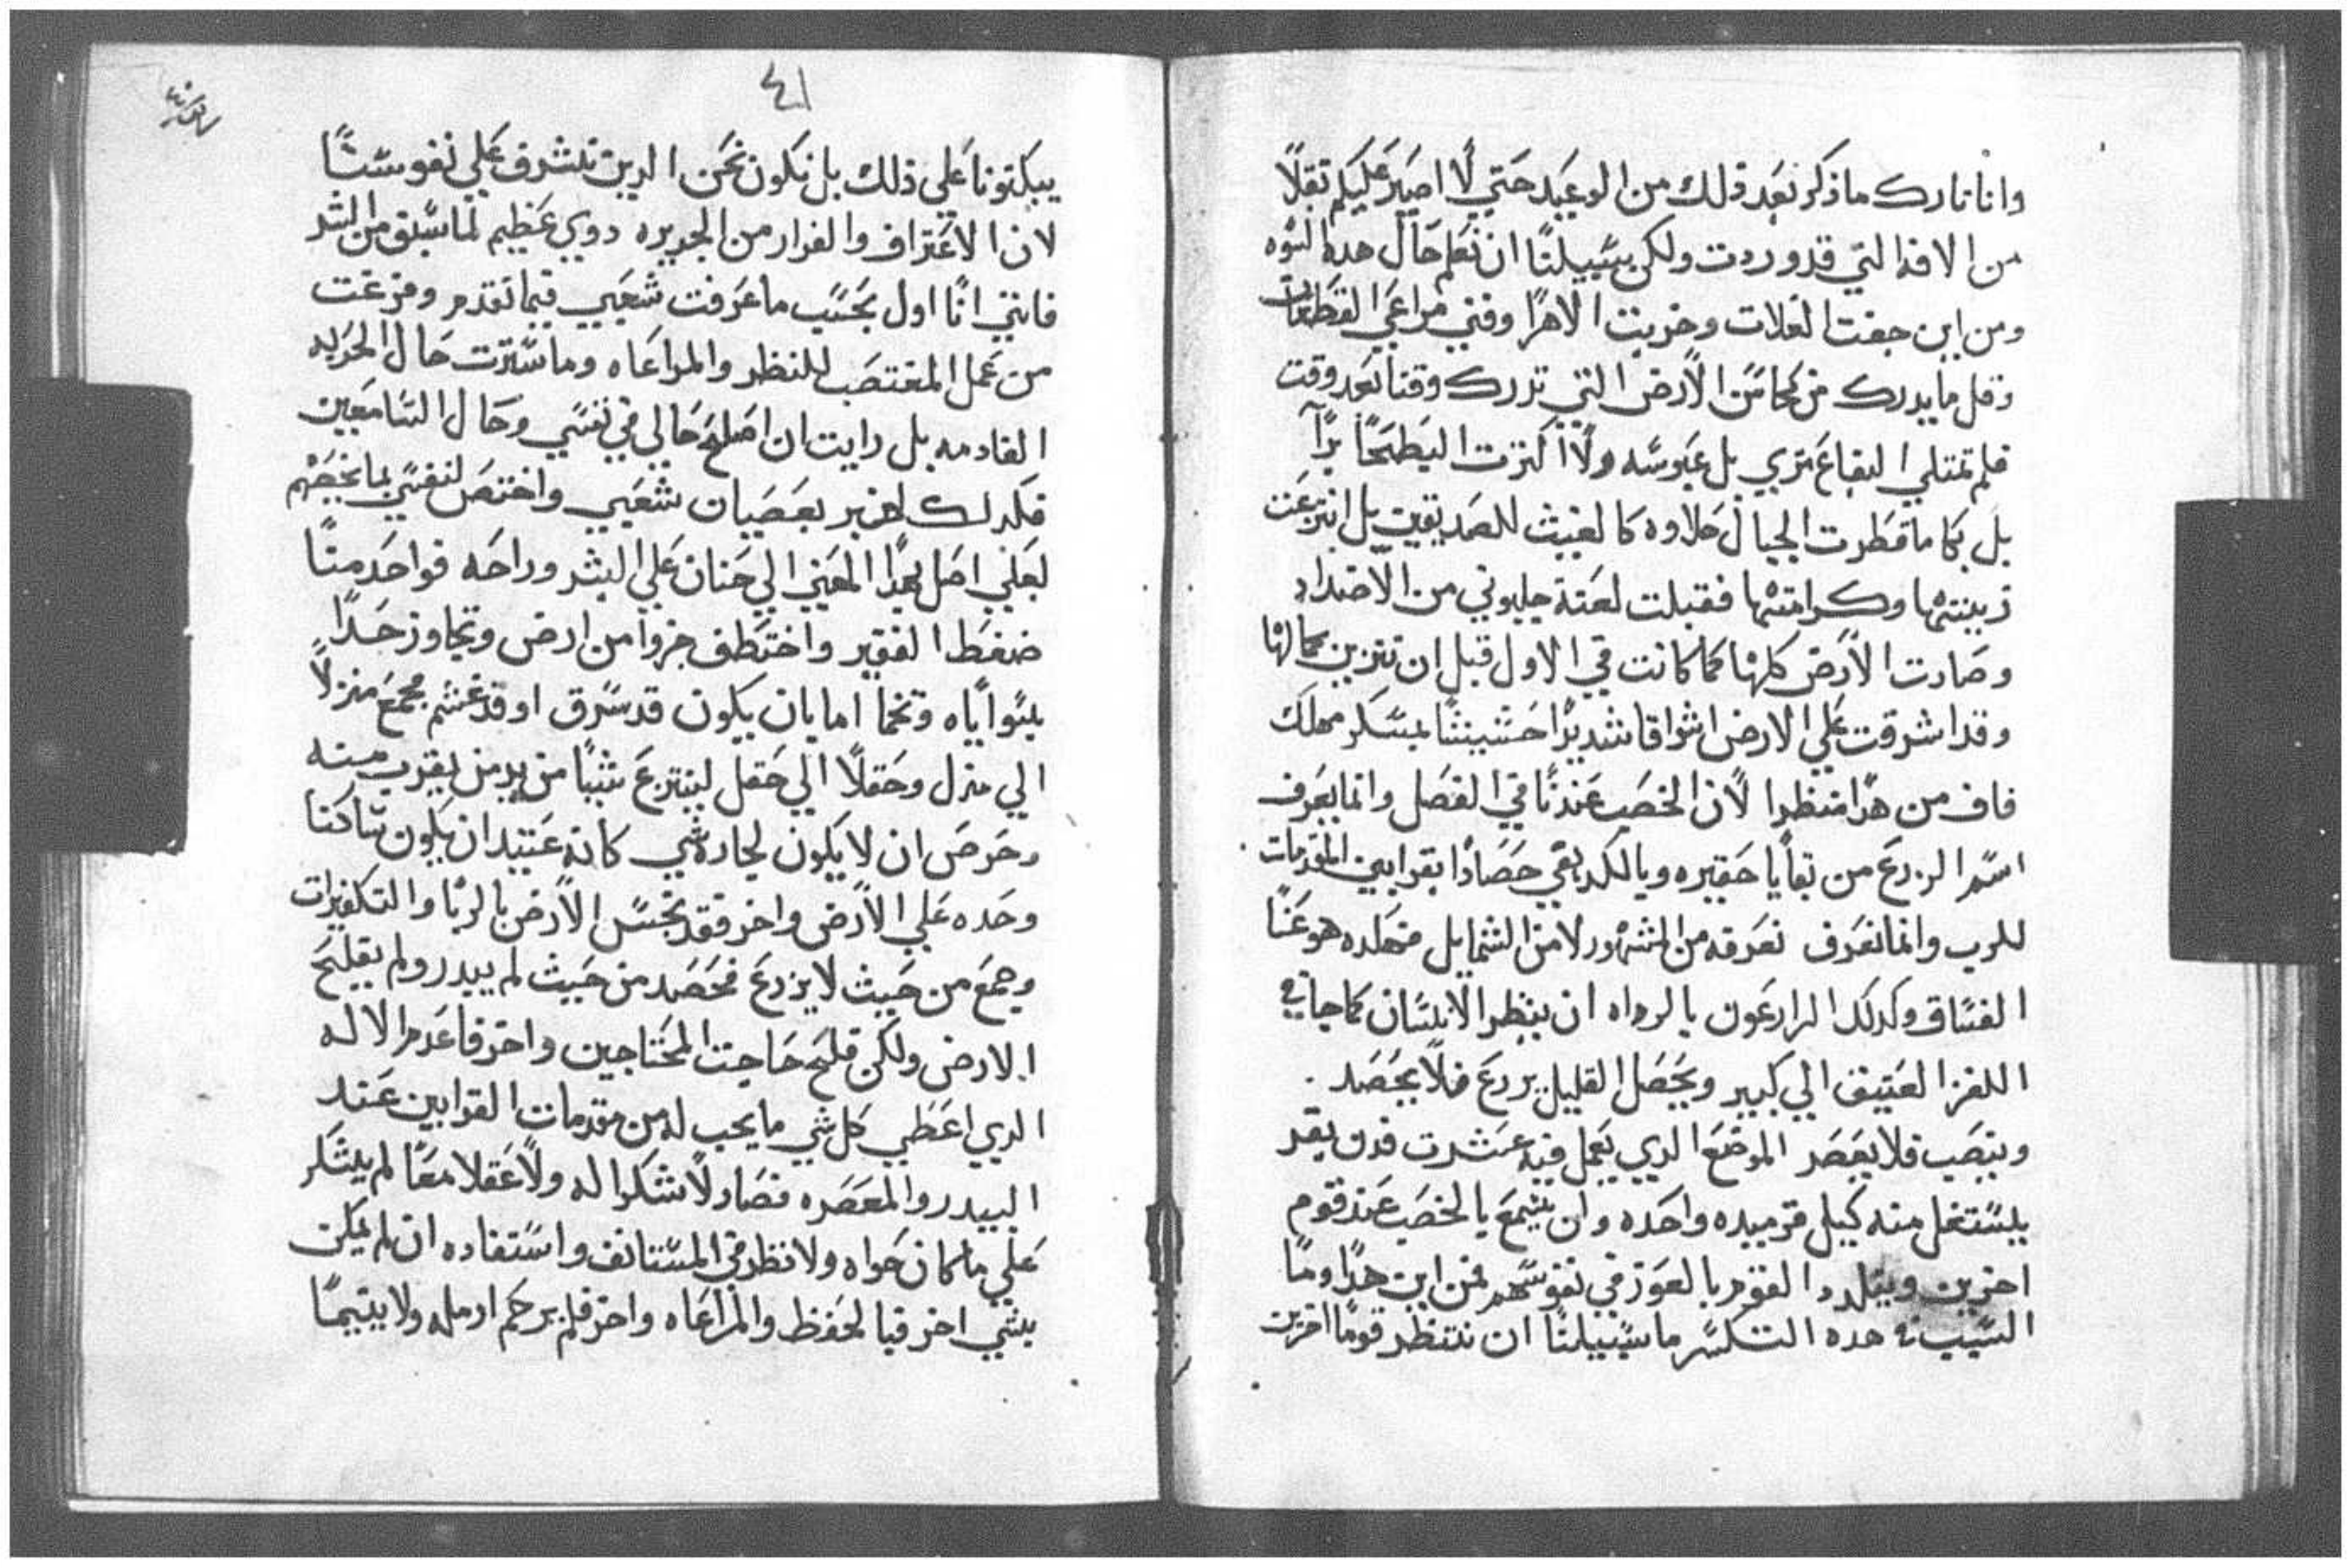 وانا تارك ما ذكر بعد ذلك من الوعيد حتي لا اصير عليكم ثقلاً
من الافه التي قد وردت ولكن سبيلنا ان نعلم حال هده
ومن اين جفت الغلات وخربت الاهرا وفني مراعي القطعان
وقل ما يدرك من الارض التي تدرك وقتا بعد وقت
فلم تمتلي البقاع بل عبوسه ولا اكتزت براً
بل كما ما قطرت الجبال حلاوه كالغيث للصديقين بل انتزعت
زينتها وكرامتها فقبلت لعنة جلبوني من الاضداد
وصارت الارض كلها كما كانت في الاول قبل ان تتزين بجمالها
وقد اشرقت علي الارض اشراقا شديداً بمسكر مهلك
فاف من هدا منظرا لان الخصب عندنا في الفصل وانما يعرف
اسم الزرع من بقايا حقيره وبالكد بقي حصادا بقرابين المقدمات
للرب وانما نعرف نعرفه من الشهور لا من الشمايل فهكده هو غنا
الفساق وكدلك الزارعون بالرداه ان ينظر الانسان كما جا في
اللغز العتيق الي كبير ويحصل القليل يزرع فلا يحصد
وينصب فلا يعصر الموضع الدي يعمل فيه عشرت فدن بقر
يستغل منه كيل قرميده واحده وان يسمع بالخصب عند قوم
اخرين القوم بالعوز في نفوسهم فمن اين هدا وما
السبب في هده التكسر ما سبيلنا ان ننتظر قوما اخرين
٤١
يبكتونا علي ذلك بل نكون نحن الدين نشرف علي نفوسنا
لان الاعتراف والفرار من الجريره دوي عظيم لما سبق من الشر
فانني انا اول بحسب ما عرفت شعبي فيما تقدم وفزعت
من عمل المغتصب للنظر والمراعاه وما سترت حال الحربه
القادمه بل رايت ان اصلح حالي في نفسي وحال السامعين
فكدلك اخبر بعصيان شعبي واختص لنفسي بما يخصهم
لعلي اصل بهدا المعني الي حنان علي البشر وراحه فواحد منا
ضغط الفقير واختطف جزوا من ارض وتجاوز حداً
بسواياه وتخما اما بان يكون قد سرق او قد غشم فجمع منزلاً
الي منزل وحقلا الي حقل لينتزع شيا من يد من يقرب منه
وحرص ان لا يكون لجاره شي كانه عتيد ان يكون ساكنا
وحده علي الارض واخر فقد نجس الارض بالربا والتكفيرات
وجمع من حيث لا يزرع فحصد من حيث لم يبدر ولم يفلح
الارض ولكن فلح حاجت المحتاجين واخر فاعدم الاله
الدي اعطي كل شي ما يحب له من مقدمات القرابين عند
البيدر والمعصره فصار لا شكرا له ولا عقلا معا لم يشكر
علي ما كان حواه ولا نظر في المستانف واستفاده ان لم يكن
بشي اخر فبالحفظ والمراعاه واخر فلم يرحم ارمله ولا يتيما